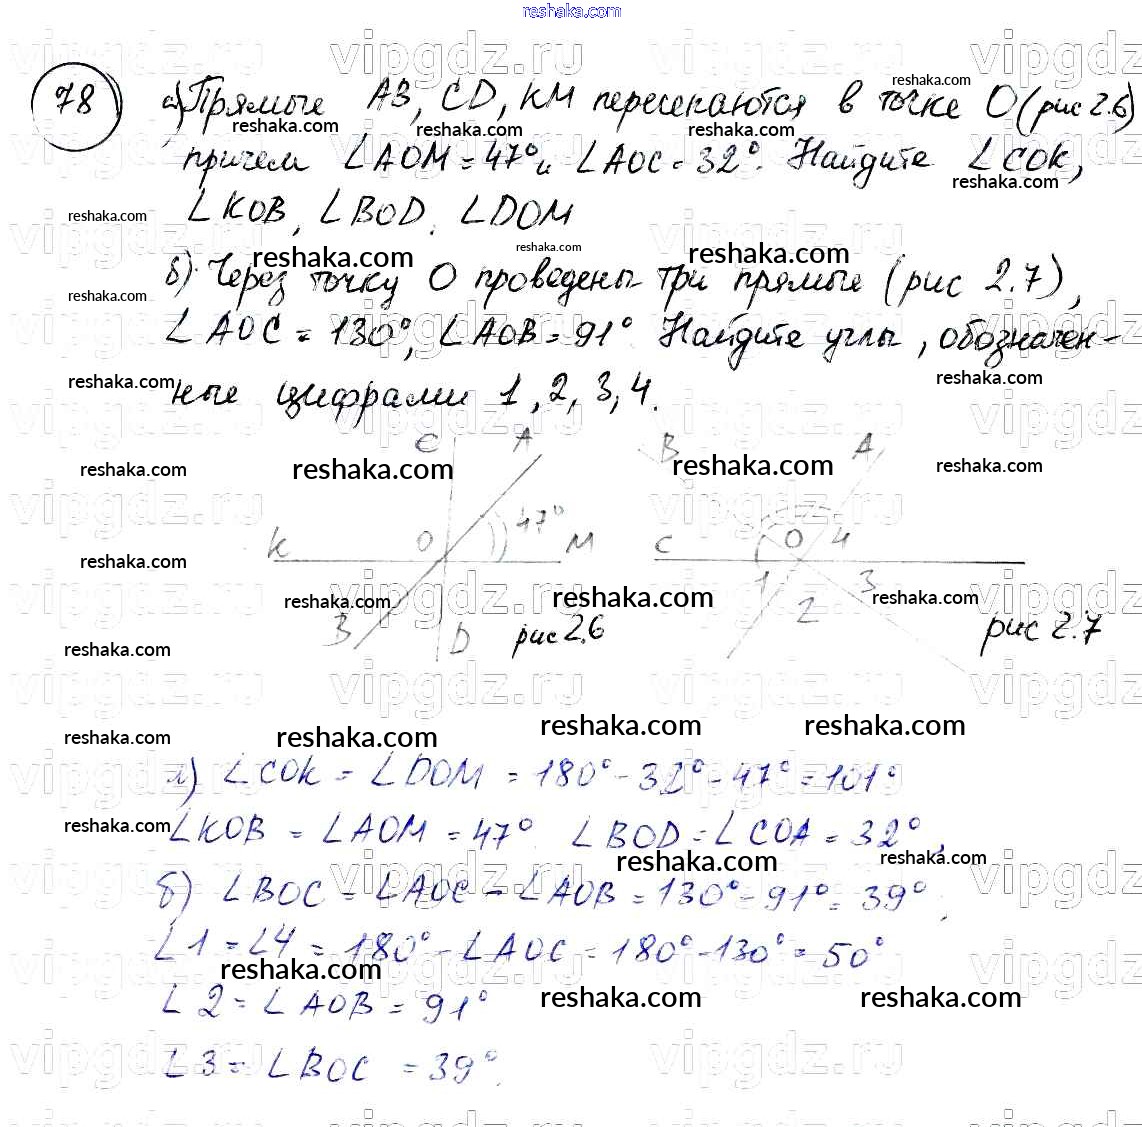 reshaka.com
78 а) Прямые AB, CD, KM пересекаются в точке O (рис 2.6)
причем ∠AOM = 47° и ∠AOC = 32°. Найдите ∠COK,
∠KOB, ∠BOD, ∠DOM
б) Через точку O проведены три прямые (рис 2.7),
∠AOC = 130°, ∠AOB = 91° Найдите углы, обозначен-
ные цифрами 1, 2, 3, 4.
C A B A
K O 47° M C O 4
1 2 3
B D рис 2.6 рис 2.7
а) ∠COK = ∠DOM = 180° - 32° - 47° = 101°
∠KOB = ∠AOM = 47° ∠BOD = ∠COA = 32°,
б) ∠BOC = ∠AOC - ∠AOB = 130° - 91° = 39°,
∠1 = ∠4 = 180° - ∠AOC = 180° - 130° = 50°
∠2 = ∠AOB = 91°
∠3 = ∠BOC = 39°.